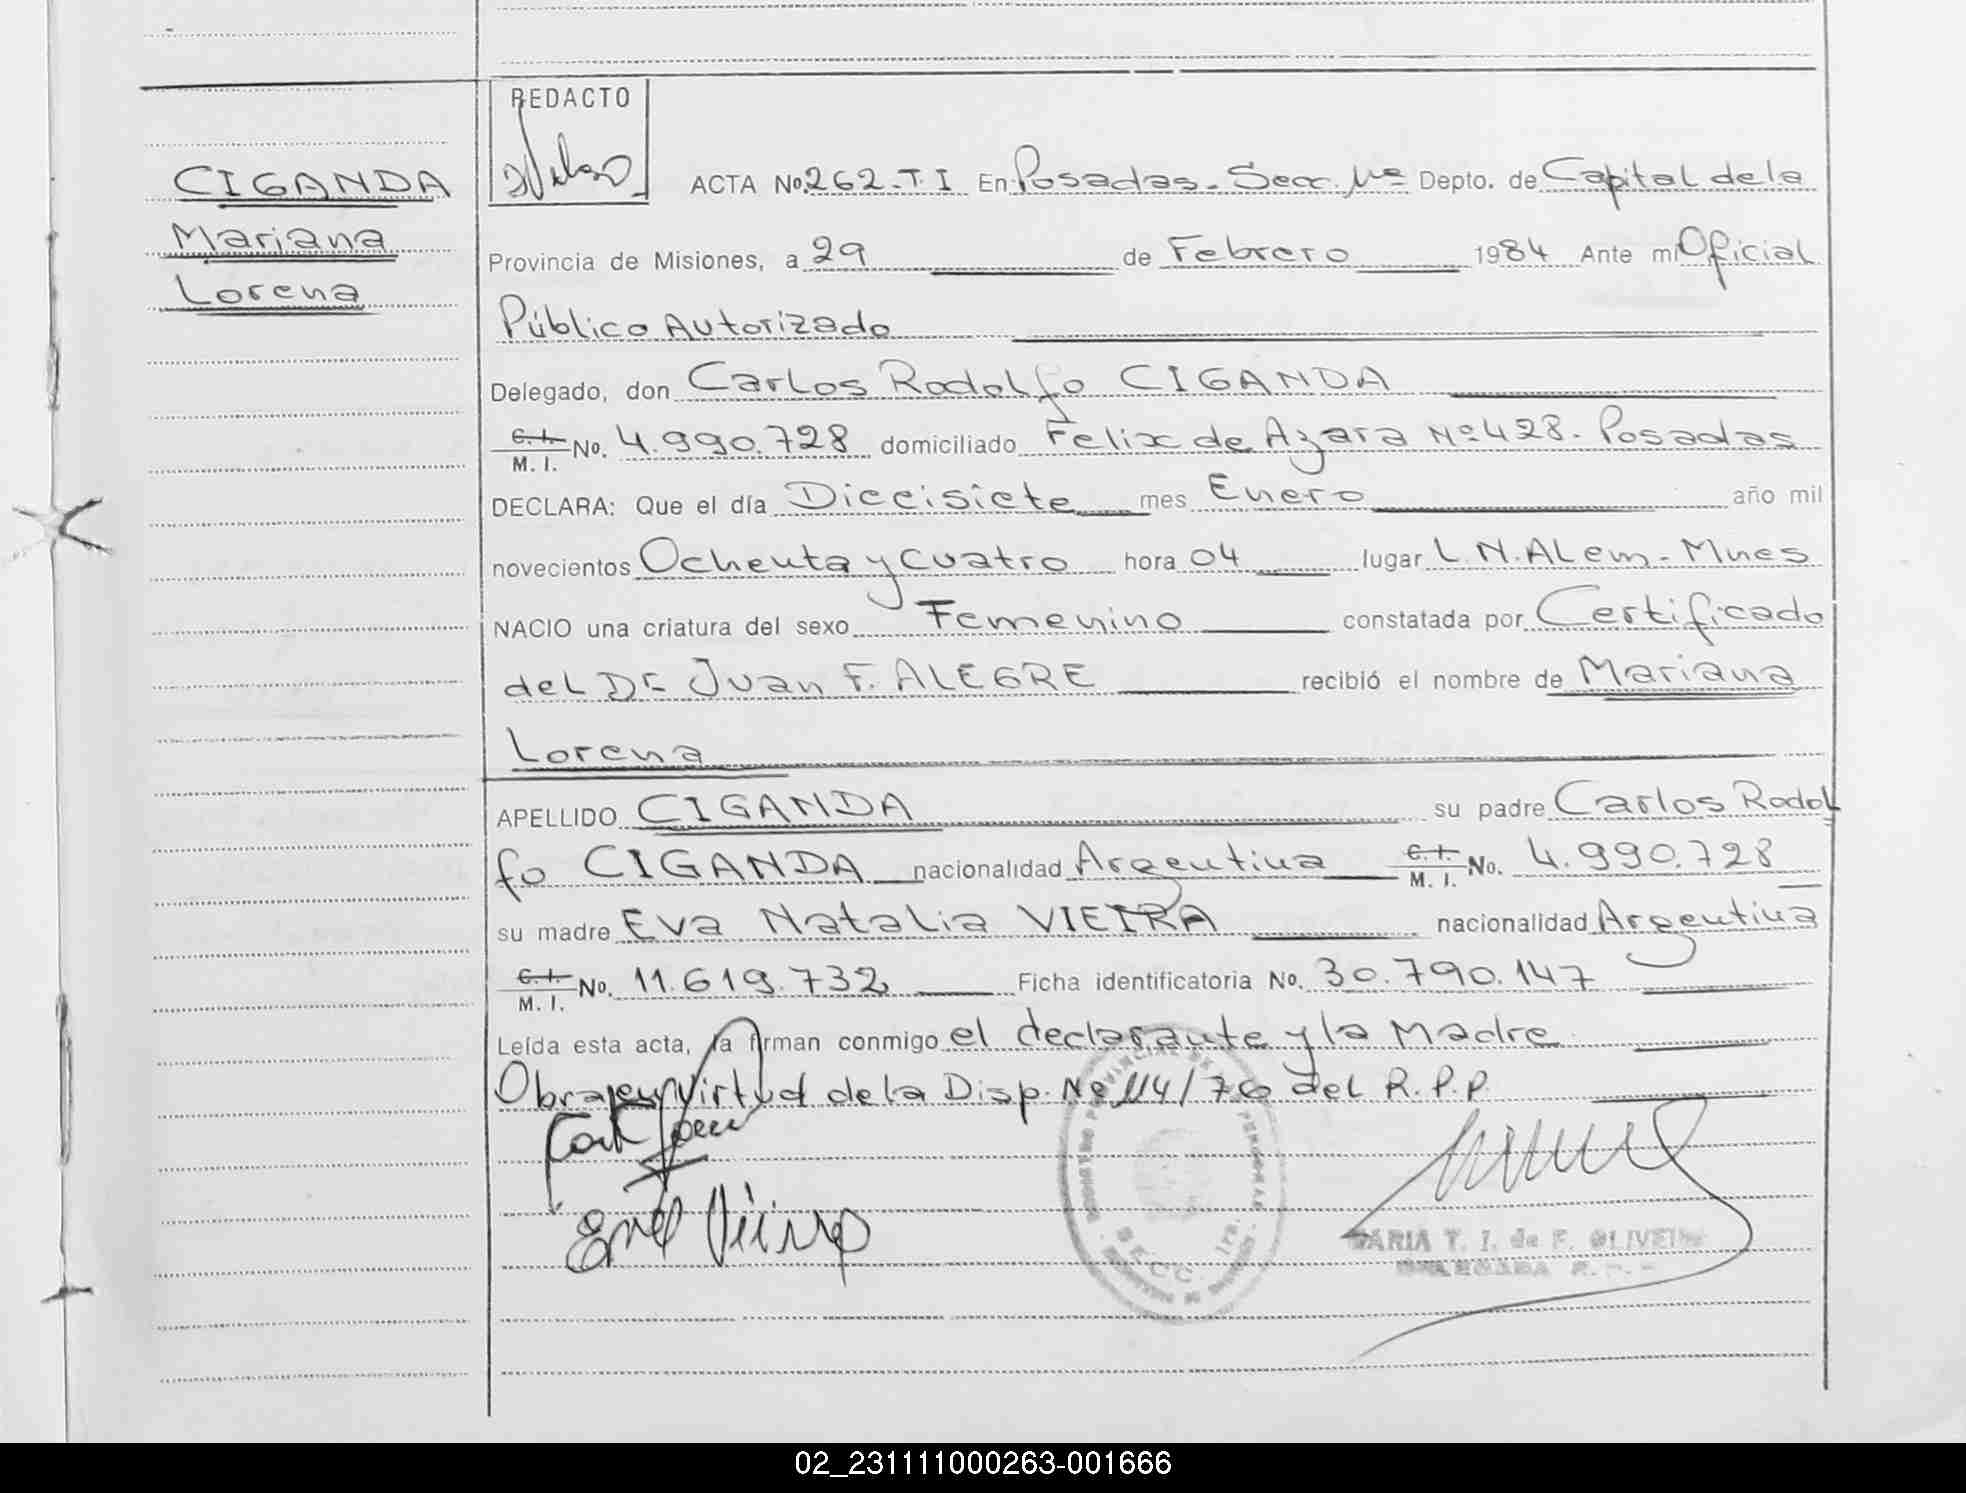 REDACTO
CIGANDA
Mariana
Lorena
ACTA No. 262-T.I En Posadas-Secc. 1ra Depto. de Capital de la
Provincia de Misiones, a 29 de Febrero 1984 Ante mi Oficial
Público Autorizado
Delegado, don Carlos Rodolfo CIGANDA
C.I. M. I. No. 4.990.728 domiciliado Felix de Azara Nº 428. Posadas
DECLARA: Que el día Diecisiete mes Enero año mil
novecientos Ochenta y cuatro hora 04 lugar L.N.ALem-Mnes
NACIO una criatura del sexo Femenino constatada por Certificado
del Dr Juan F. ALEGRE recibió el nombre de Mariana
Lorena
APELLIDO CIGANDA su padre Carlos Rodol
fo CIGANDA nacionalidad Argentina C.I. M. I. No. 4.990.728
su madre Eva Natalia VIEIRA nacionalidad Argentina
C.I. M. I. No. 11.619.732 Ficha identificatoria No. 30.790.147
Leída esta acta, la firman conmigo el declarante y la Madre
Obra en Virtud de la Disp. Nº 114/76 del R.P.P.
MARIA T. I. de F. OLIVEIRA
DELEGADA
SECC. 1ra.
02_231111000263-001666